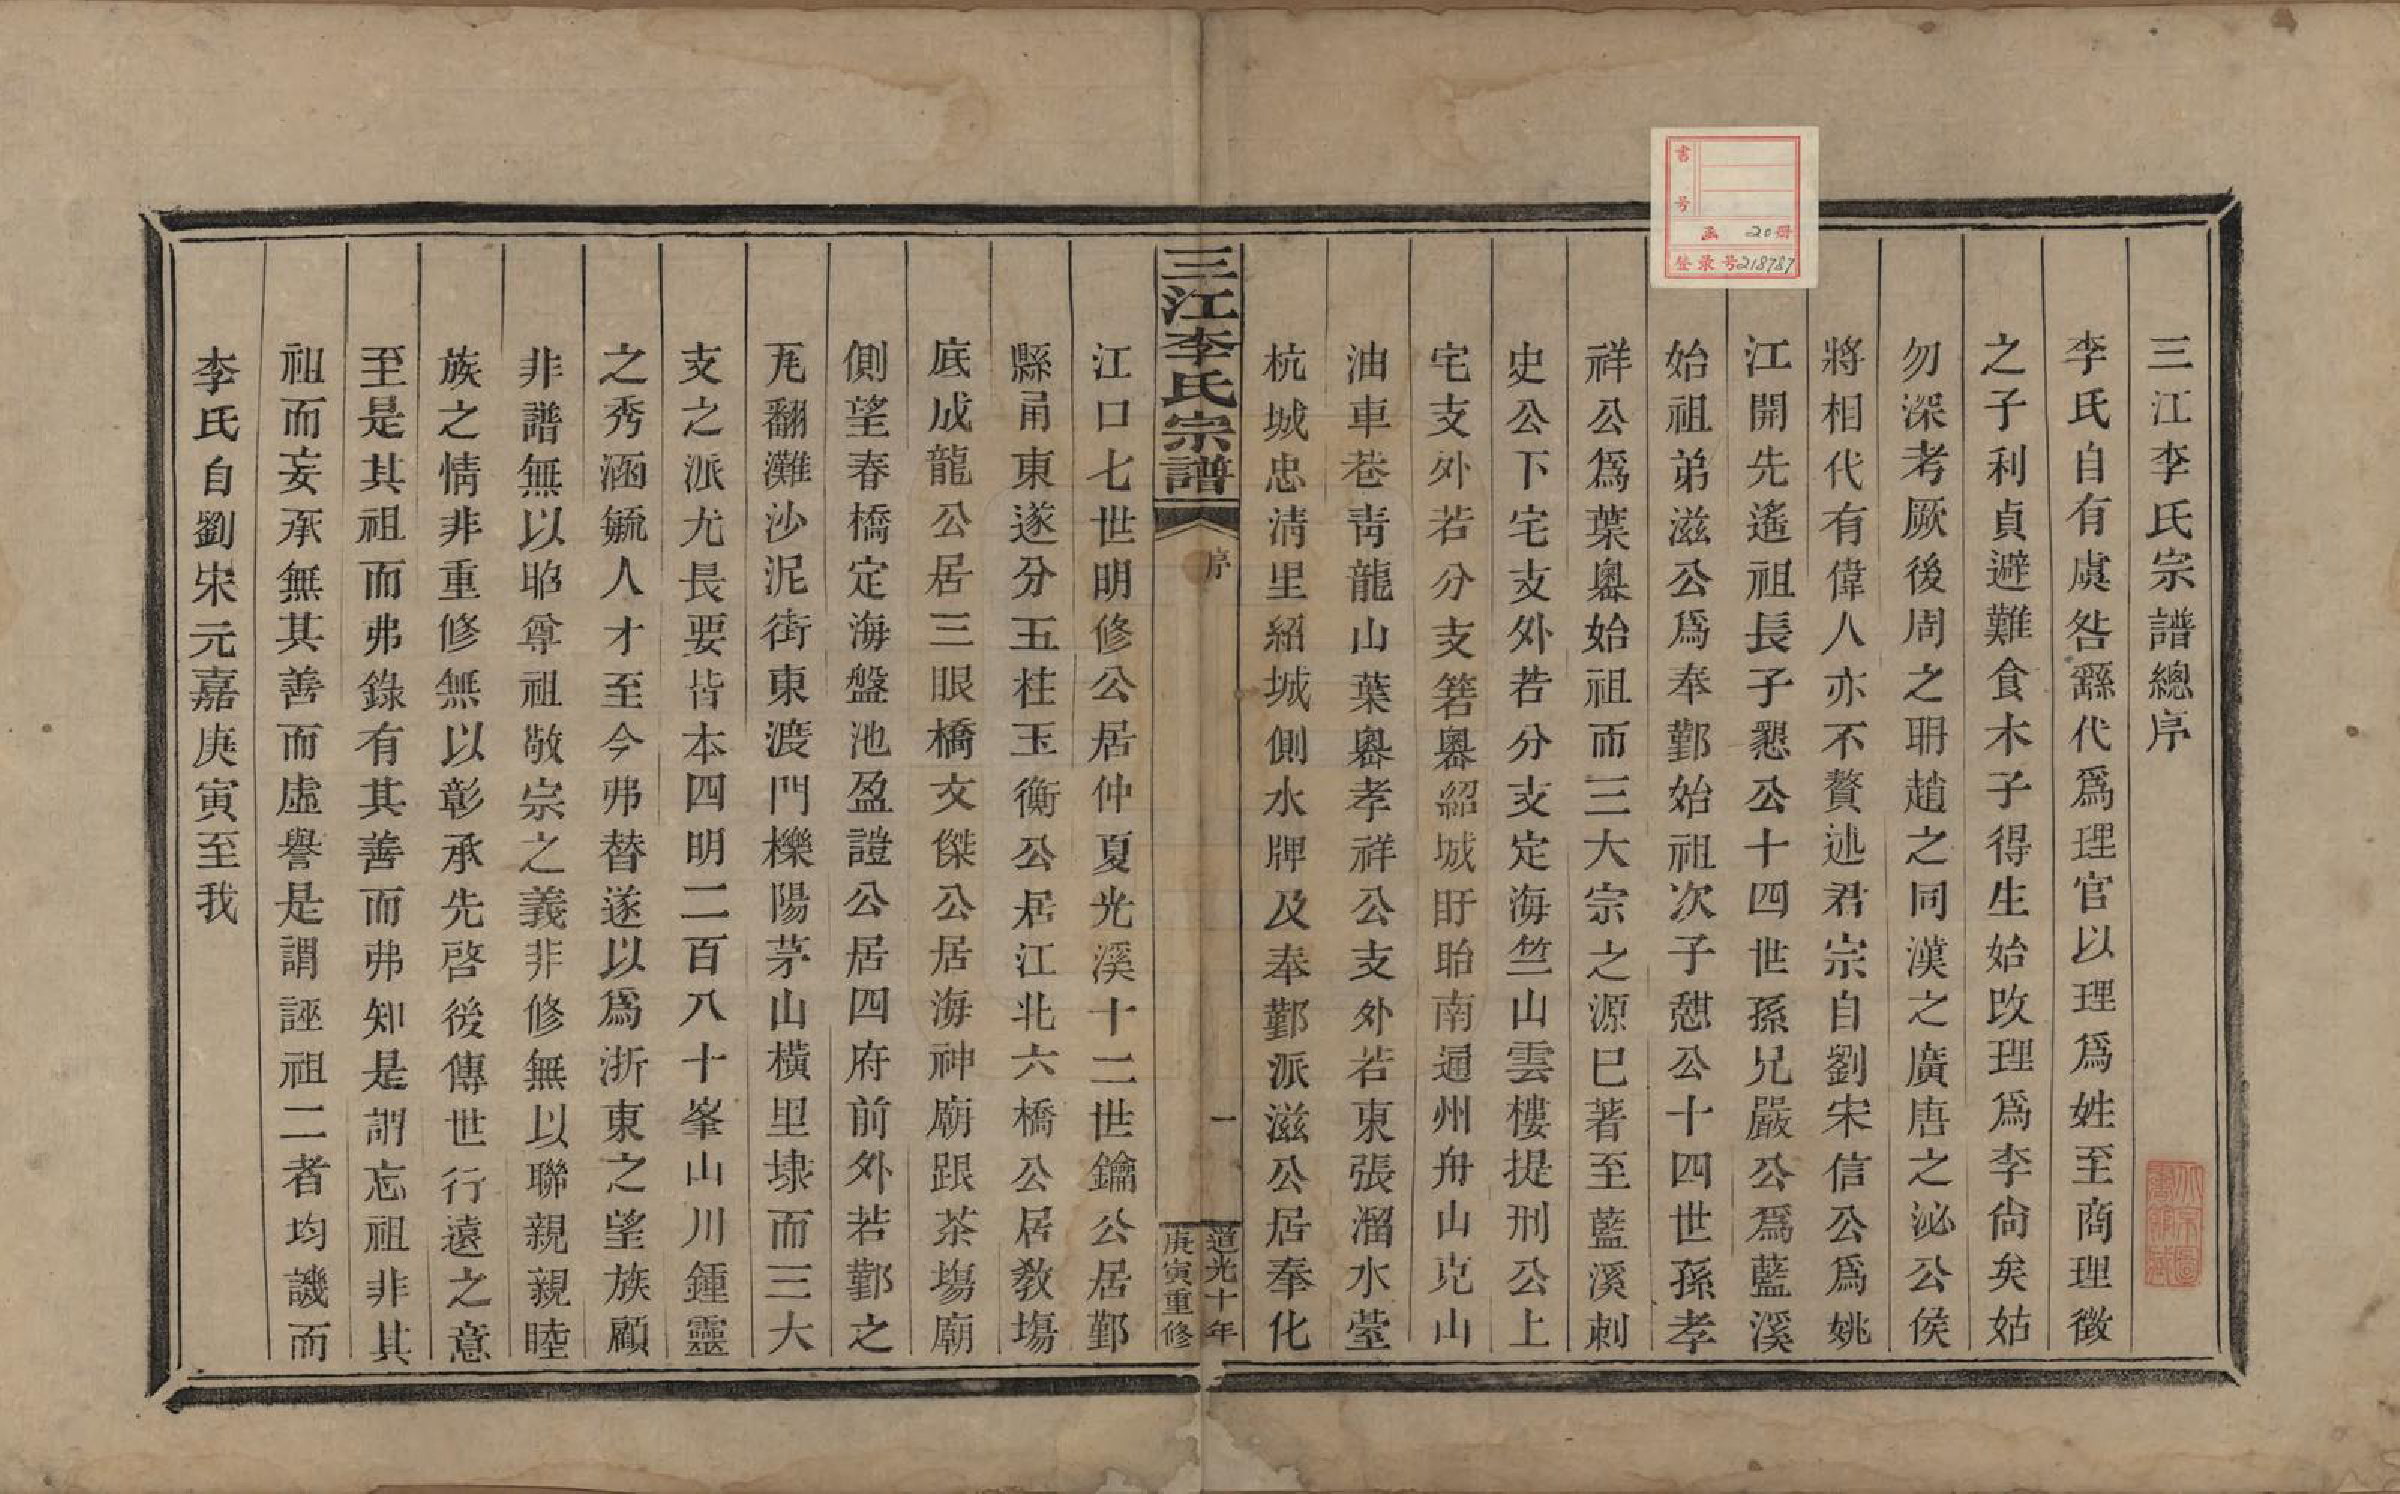 三江李氏宗譜總序
李氏自有虞咎繇代爲理官以理爲姓至商理徵
之子利貞避難食木子得生始改理爲李尙矣姑
勿深考厥後周之聃趙之同漢之廣唐之泌公侯
將相代有偉人亦不贅述君宗自劉宋信公爲姚
江開先遙祖長子懇公十四世孫兄嚴公爲藍溪
始祖弟滋公爲奉鄞始祖次子憇公十四世孫孝
祥公爲葉嶴始祖而三大宗之源已著至藍溪刺
史公下宅支外若分支定海竺山雲樓提刑公上
宅支外若分支箬嶴紹城盱眙南通州舟山克山
油車巷靑龍山葉嶴孝祥公支外若東張溜水瑩
杭城忠淸里紹城側水牌及奉鄞派滋公居奉化
三江李氏宗譜
序
一
道光十年
庚寅重修
江口七世明修公居仲夏光溪十二世鑰公居鄞
縣甬東遂分五柱玉衡公居江北六橋公居敎塲
底成龍公居三眼橋文傑公居海神廟跟茶塲廟
側望春橋定海盤池盈證公居四府前外若鄞之
𠒋翻灘沙泥街東渡門櫟陽茅山橫里埭而三大
支之派尤長要皆本四明二百八十峯山川鍾靈
之秀涵毓人才至今弗替遂以爲浙東之望族顧
非譜無以昭尊祖敬宗之義非修無以聯親親睦
族之情非重修無以彰承先啓後傳世行遠之意
至是其祖而弗錄有其善而弗知是謂忘祖非其
祖而妄承無其善而虛譽是謂誣祖二者均譏而
李氏自劉宋元嘉庚寅至我
書号
函 20冊
登录号218787